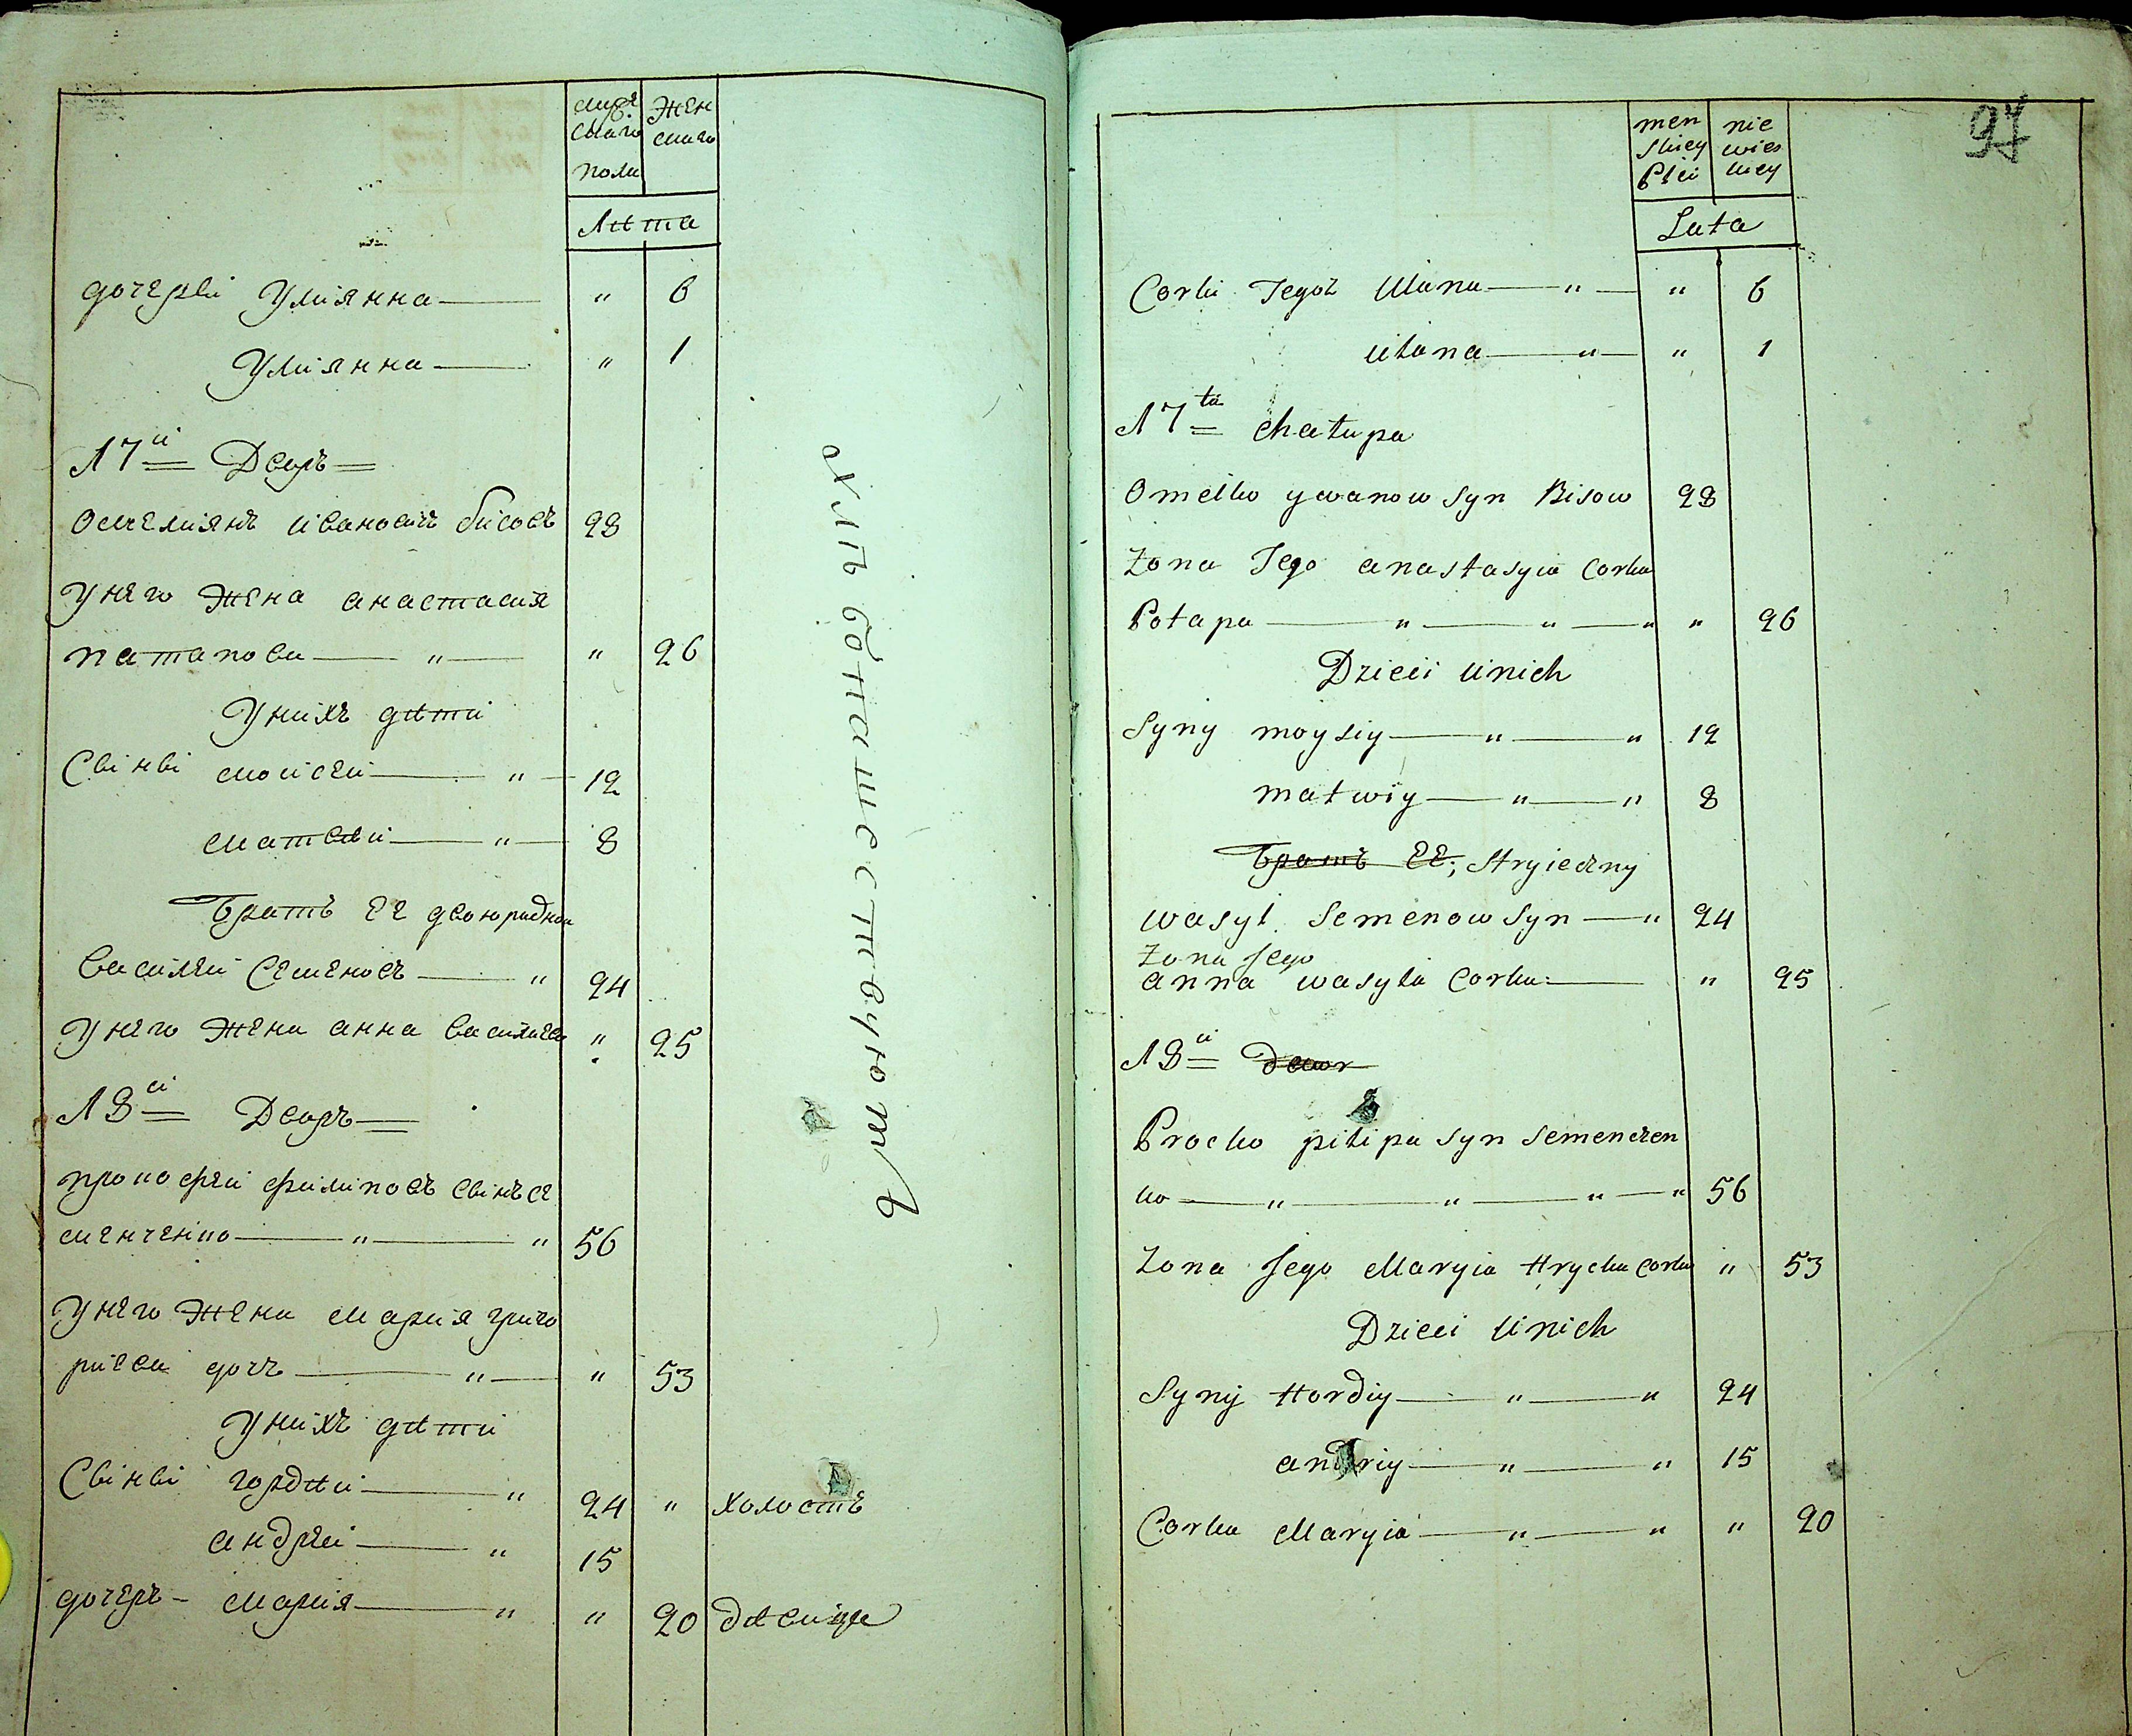 мужескаго
пола
женскаго
Лѣта
дочеръи Улиянна — " 6
Улиянна — " 1
17й Дворъ
Омелиянъ ивановичъ бисовъ 28
Унего жена анастасия
патапова — " — " 26
Унихъ дѣти
Сыны моисѣй — " — 12
матвѣй — " — 8
Братъ ее двоюродной
василѣй Семеновъ — " 24
Унего жена анна василиева " 25
18й Дворъ
прокофѣй филиповъ сынъ се
менченко — " — " 56
Унего жена мария григо
риева дочъ — " — " 53
Унихъ дѣти
Сыны гордѣй — " 24 " холостъ
андрѣй — " 15
дочеръ - мария — " " 20 дѣвица
хлѣбопашествуютъ
97
men
skiey
Płci
nie
wies
kiey
Lata
Corki Jegoż Ulana — " — " 6
Ulana — " — " 1
17ta chatupa
Omelko ywanow syn Bisow 28
Żona Jego anastasyia Corka
Potapa — " — " — " " 26
Dzieci Unich
Syny moysiy — " — " 12
matwiy — " — " 8
Братъ ЕЕ; Stryieczny
wasyl Semenow Syn — " 24
Żona Jego
anna wasyla Corka — " 25
18й dwor
Procko pilipa syn Semenczen
ko — " — " — " — " 56
Żona Jego Maryia Hrycka corka " 53
Dzieci Unich
Syny Hordiy — " — " 24
andriy — " — " 15
Corka Maryia — " — " " 20